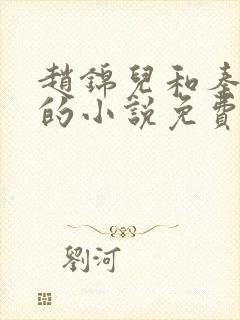 趙錦兒和秦
的小說免費
劉河